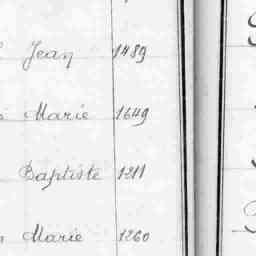 Jean 1489
Marie 1649
Baptiste 1211
Marie 1260